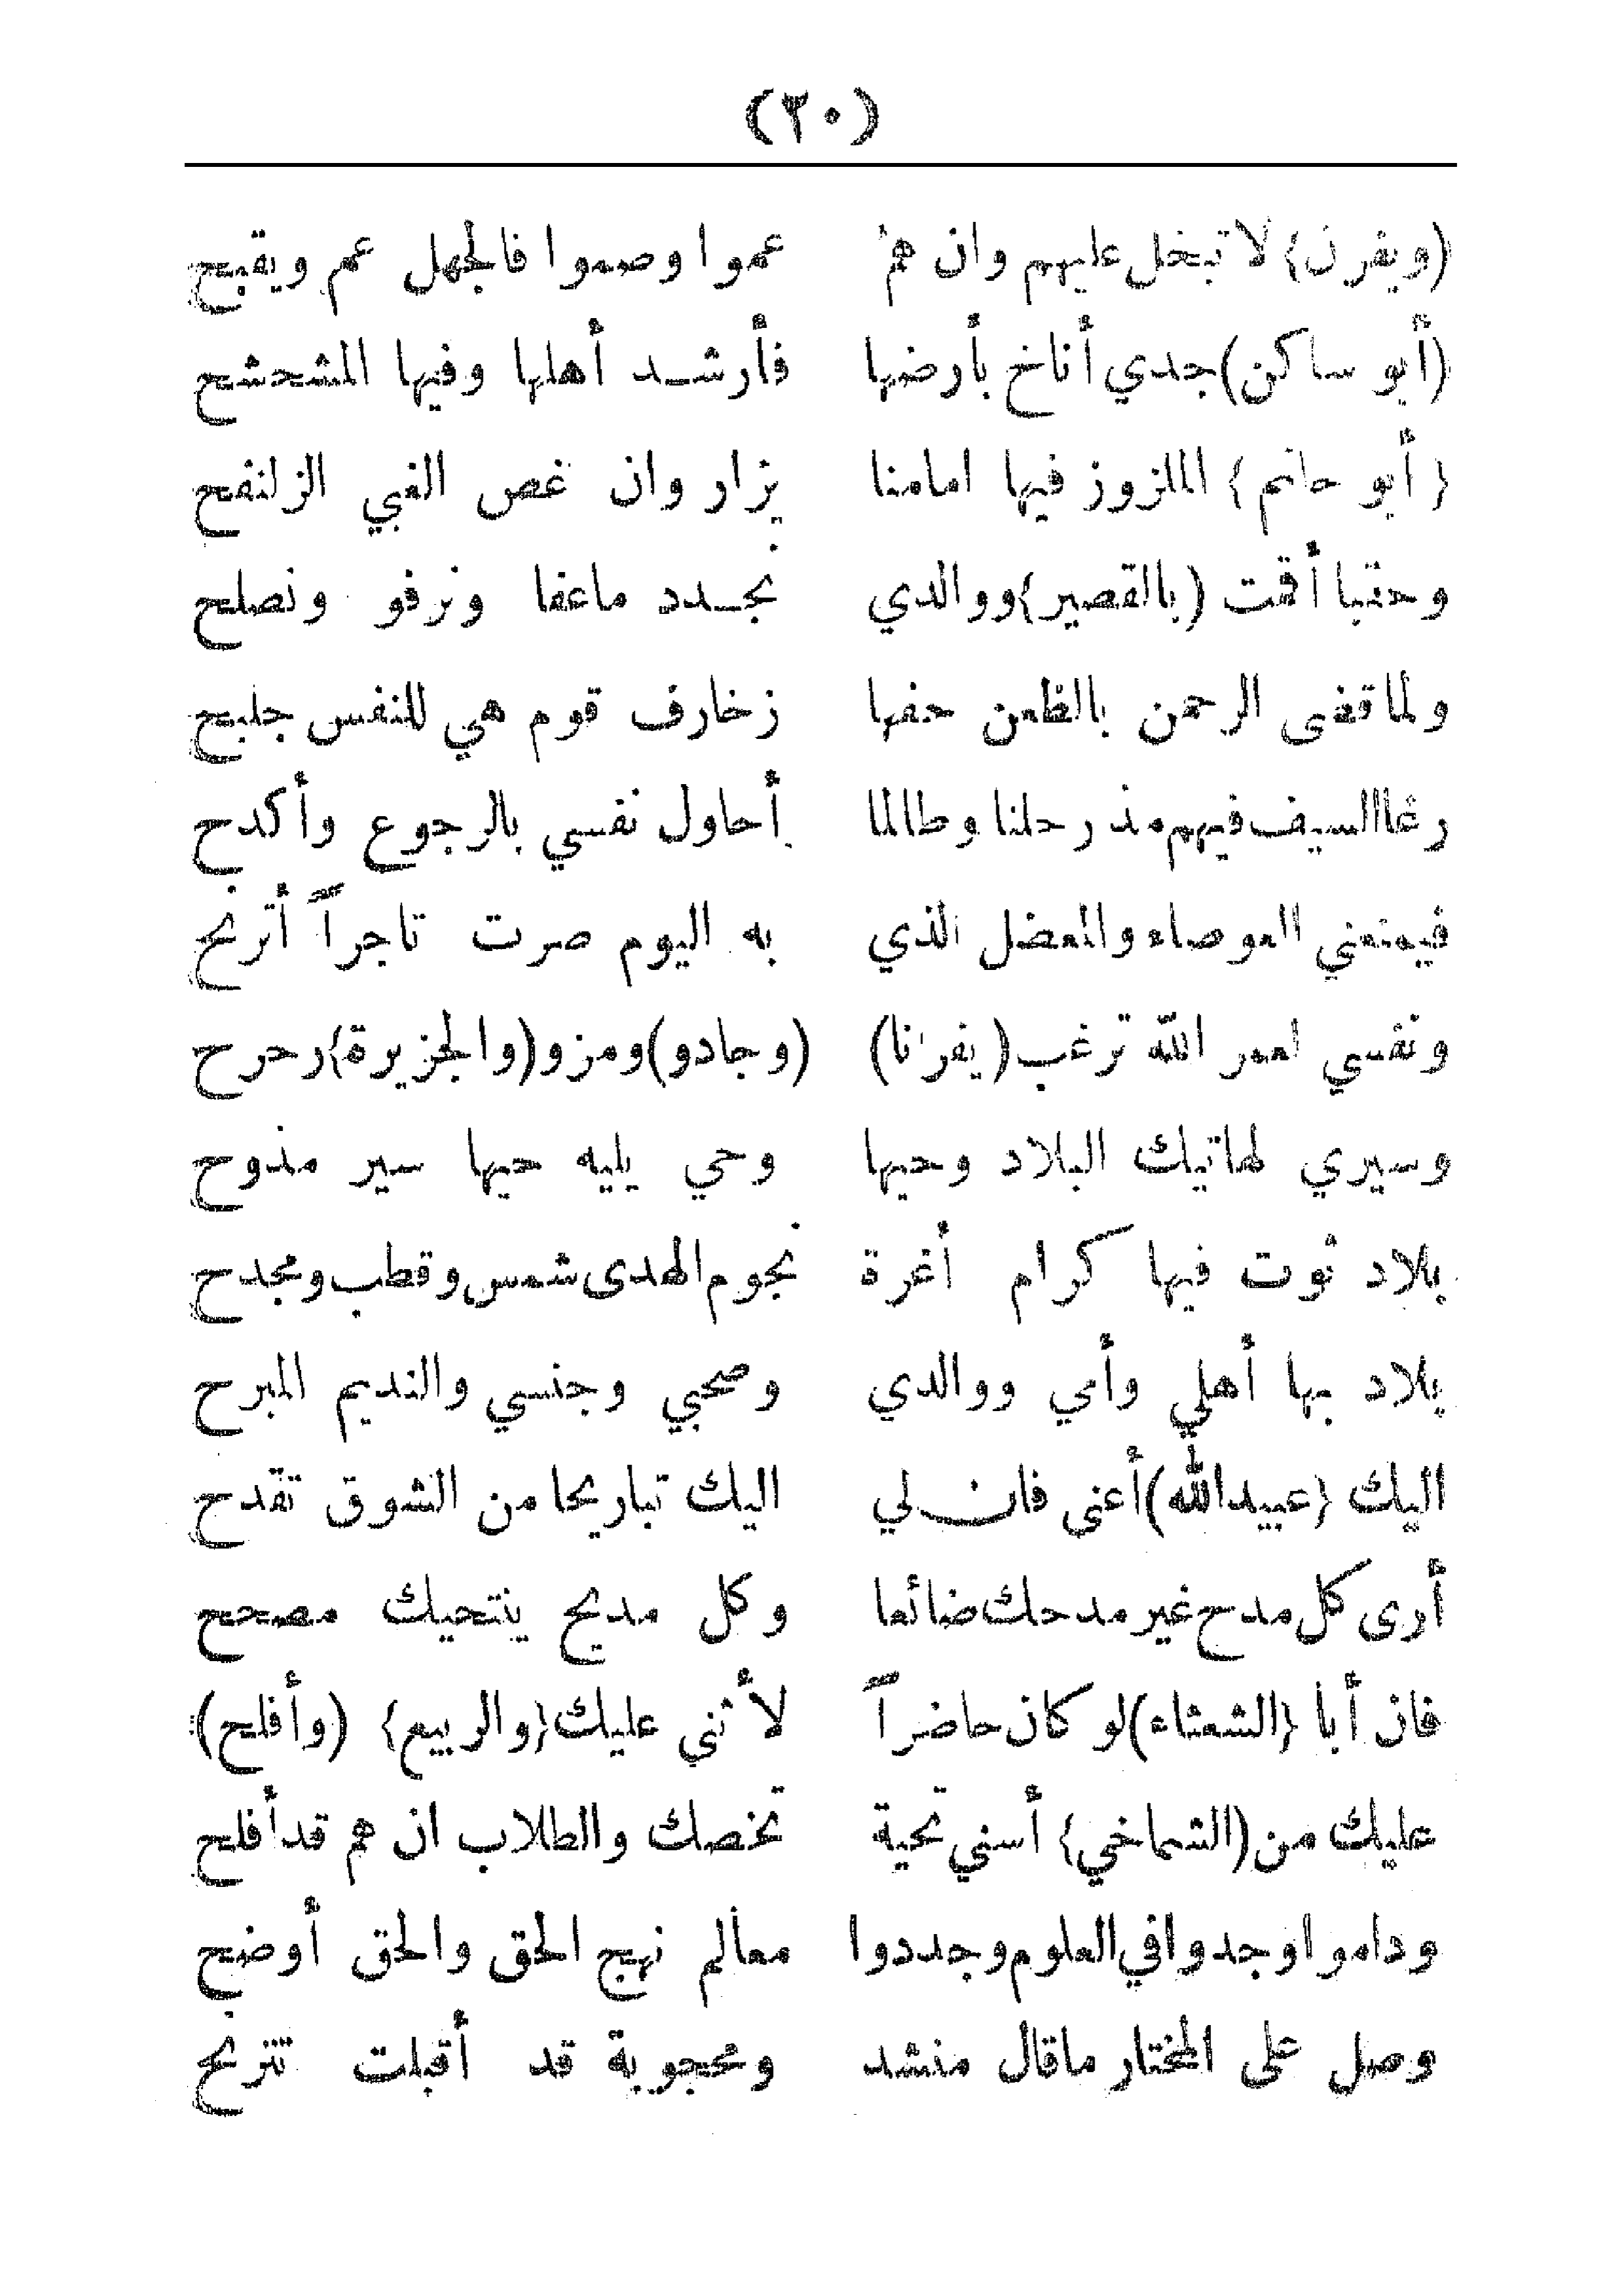 (٢٠)
(ويفرن) لا تبخل عليهم وان هم عموا وصموا فالجهل عم ويقبح
(أبو ساكن) جدي أناخ بأرضها فأرشد أهلها وفيها المشحشح
(أبو حاتم) الملزوز فيها امامنا يزار وان غص الغبي الزلنقح
وحقبا أقمت (بالقصير) ووالدي نجدد ماعفا ونرفو ونصلح
ولما قضى الرحمن بالظعن حفها زخارف قوم هي للنفس جلبح
رغا السيف فيهم مذ رحلنا وطالما أحاول نفسي بالرجوع وأكدح
فيمنعني العوصاء والمعضل الذي به اليوم صرت تاجراً أتربح
ونفسي لعمر الله ترغب (يفرانا) (وجادو) ومزو (والجزيرة) رحرح
وسيري لهاتيك البلاد وحيها وحي يليه حيها سير مذوح
بلاد ثوت فيها كرام أغرة نجوم الهدى شمس وقطب ومجدح
بلاد بها أهلي وأمي ووالدي وصحبي وجنسي والنديم المبرح
اليك (عبيدالله) أعنى فان لي اليك تباريحا من الشوق تقدح
أرى كل مدح غير مدحك ضائعا وكل مديح ينتحيك مصحح
فان أبا (الشعثاء) لو كان حاضراً لأثنى عليك (والربيع) (وأفلح)
عليك من (الشماخي) أسنى تحية تخصك والطلاب ان هم قد أفلح
وداموا وجدوا في العلوم وجددوا معالم نهج الحق والحق أوضح
وصل على المختار ماقال منشد ومحجوبة قد أقبلت تترنح